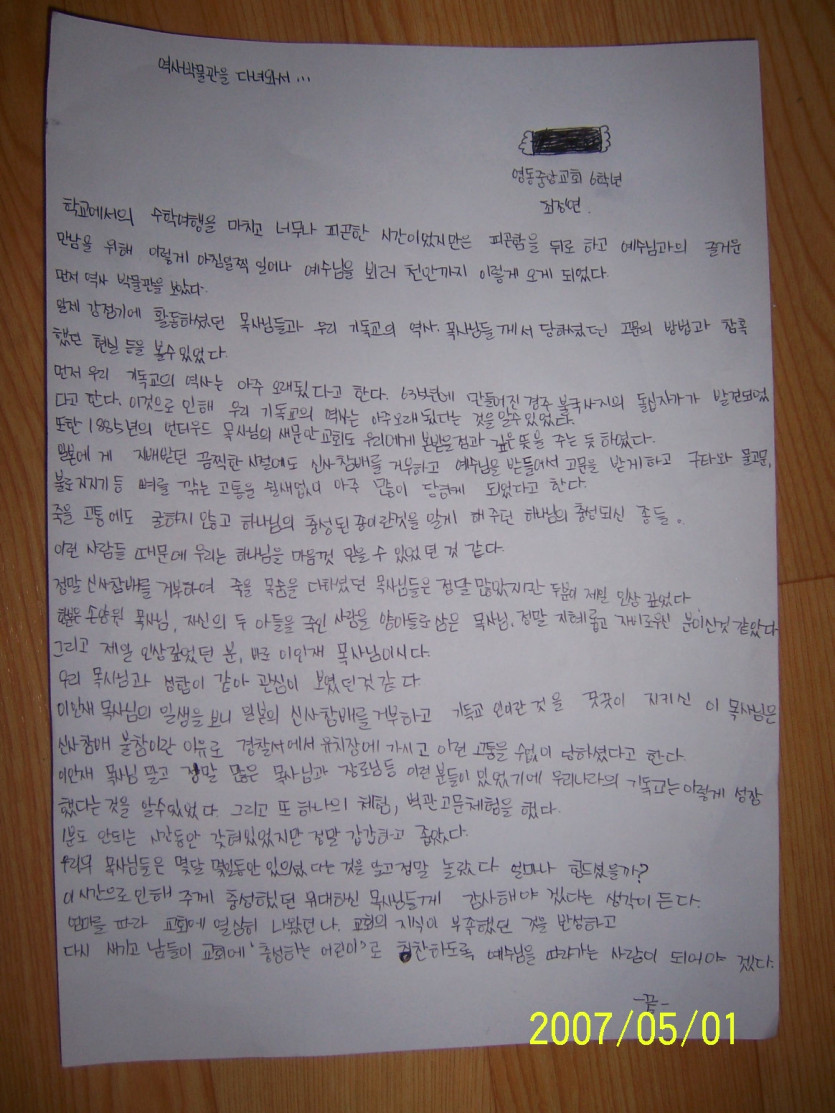 역사박물관을 다녀와서...
영동중앙교회 6학년
최정연.
학교에서의 수학여행을 마치고 너무나 피곤한 시간이었지만은 피곤함을 뒤로 하고 예수님과의 즐거운
만남을 위해 이렇게 아침일찍 일어나 예수님을 뵈러 천안까지 이렇게 오게 되었다.
먼저 역사 박물관을 보았다.
일제 강점기에 활동하셨던 목사님들과 우리 기독교의 역사. 목사님들께서 당하셨던 고문의 방법과 참혹
했던 현실 등을 볼수있었다.
먼저 우리 기독교의 역사는 아주 오래됬다고 한다. 635년에 만들어진 경주 불국사지의 돌십자가가 발견되었
다고 한다. 이것으로 인해 우리 기독교의 역사는 아주오래됬다는 것을 알수있었다.
또한 1885년의 언더우드 목사님의 새문안교회도 우리에게 본받을점과 깊은 뜻을 주는 듯 하였다.
일본에 게 지배받던 끔찍한 시절에도 신사참배를 거부하고 예수님을 받들어서 고문을 받게하고 구타와 물고문,
불로 지지기 등 뼈를 깎는 고통을 쉴새없이 아주 많이 당하게 되었다고 한다.
죽을 고통에도 굴하지 않고 하나님의 충성된 종이란것을 알게 해주던 하나님의 충성되신 종들.
이런 사람들 때문에 우리는 하나님을 마음껏 믿을 수 있었던 것 같다.
정말 신사참배를 거부하여 죽을 목숨을 다하셨던 목사님들은 정말 많았지만 두분이 제일 인상 깊었다
손양원 목사님, 자신의 두 아들을 죽인 사람을 양아들로 삼은 목사님. 정말 지혜롭고 자비로우신 분이신것 같았다
그리고 제일 인상깊었던 분, 바로 이인재 목사님이시다.
우리 목사님과 성함이 같아 관심이 보였던것 같다
이인재 목사님의 일생을 보니 일본의 신사참배를 거부하고 기독교 인이란 것을 꿋꿋이 지키신 이 목사님은
신사참배 불참이란 이유로 경찰서에서 유치장에 가시고 이런 고통을 수없이 당하셨다고 한다.
이인재 목사님 말고 정말 많은 목사님과 장로님등 이런 분들이 있었기에 우리나라의 기독교는 이렇게 성장
했다는 것을 알수있었다. 그리고 또 하나의 체험, 벽관고문체험을 했다.
1분도 안되는 시간동안 갇혀있었지만 정말 갑갑하고 좁았다.
우리의 목사님들은 몇달 몇일동안 있으셨 다는 것을 알고 정말 놀랐다 얼마나 힘드셨을까?
이 시간으로 인해 주께 충성하셨던 위대하신 목사님들께 감사해야 겠다는 생각이 든다.
엄마를 따라 교회에 열심히 나왔던 나. 교회의 지식이 부족했던 것을 반성하고
다시 새기고 남들이 교회에 '충성하는 어린이'로 칭찬하도록 예수님을 따라가는 사람이 되어야 겠다.
-끝-
2007/05/01